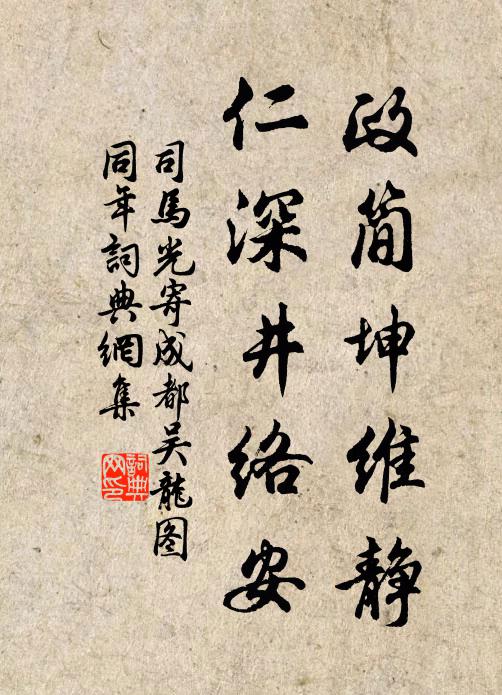 政简坤维静
仁深井络安
司馬光寄成都吴龍图
同年詞典網集
詞典网印